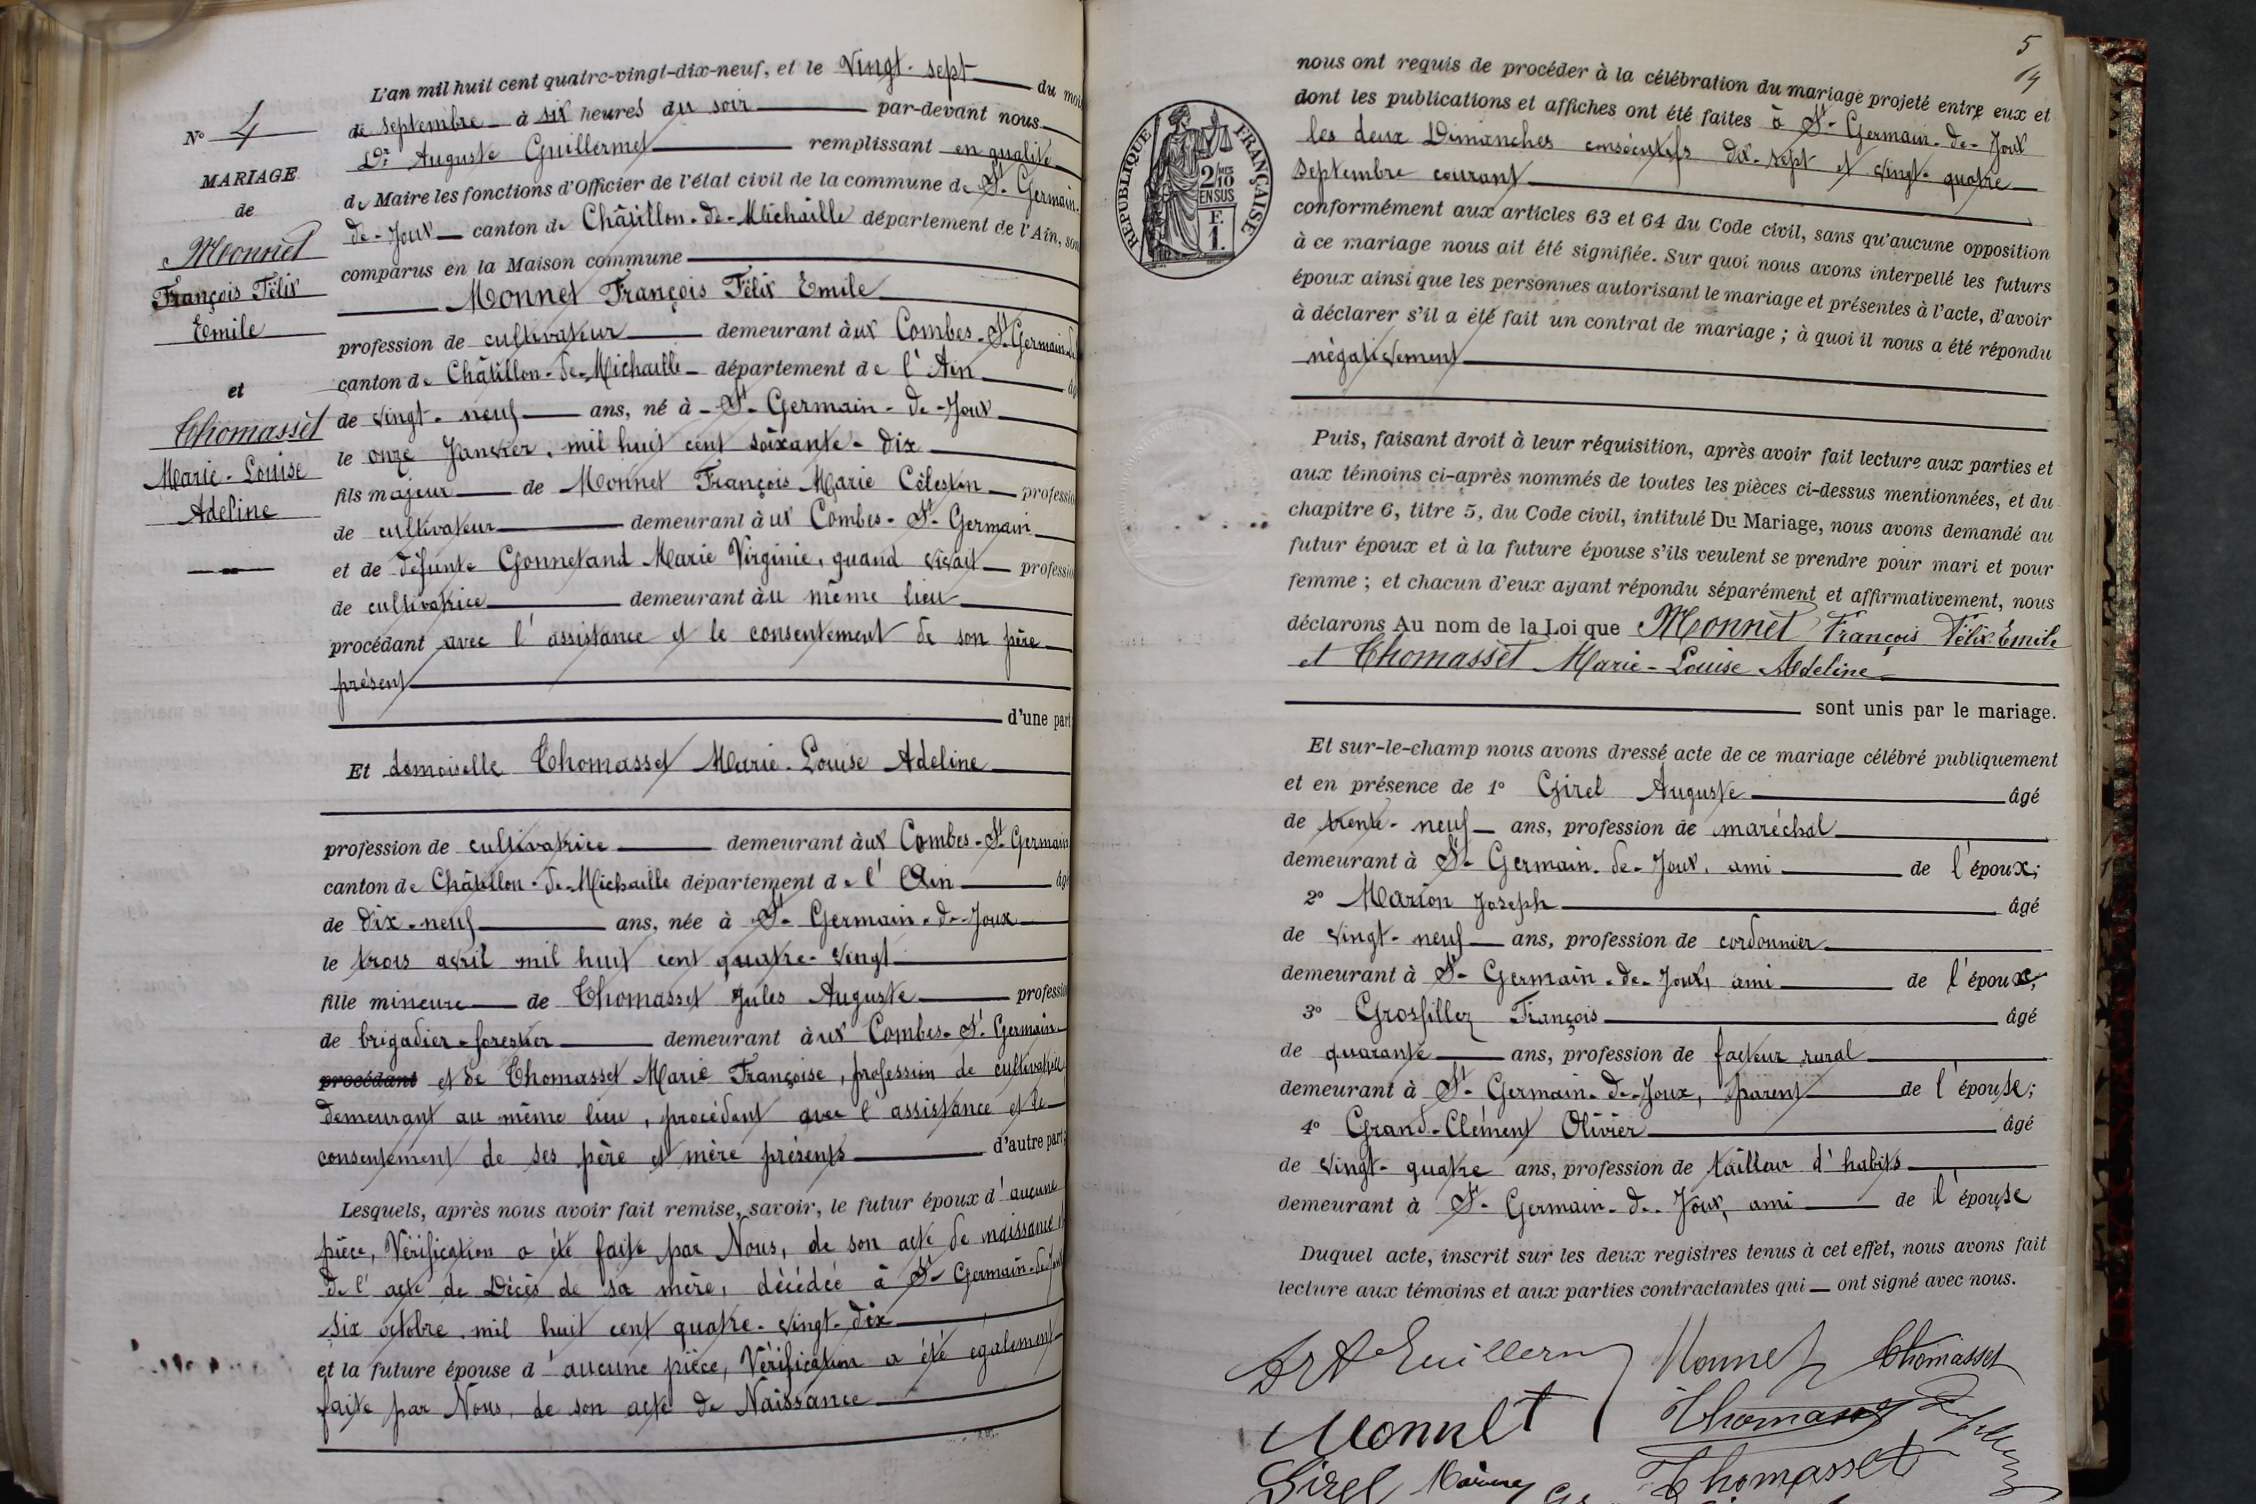 N° 4
MARIAGE
de
Monnet
François Félix
Emile
et
Thomasset
Marie-Louise
Adeline
L'an mil huit cent quatre-vingt-dix-neuf, et le Vingt-sept du mois
de septembre à six heures du soir par-devant nous
Dr Auguste Guillermet remplissant en qualité
de Maire les fonctions d'Officier de l'état civil de la commune de St-Germain-
de-Joux canton de Châtillon-de-Michaille département de l'Ain, sont
comparus en la Maison commune
Monnet François Félix Emile
profession de cultivateur demeurant aux Combes-St-Germain-de
canton de Châtillon-de-Michaille département de l'Ain âgé
de vingt-neuf ans, né à St-Germain-de-Joux
le onze Janvier, mil huit cent soixante-dix
fils majeur de Monnet François Marie Célestin profession
de cultivateur demeurant aux Combes-St-Germain
et de défunte Gonnetand Marie Virginie, quand vivait profession
de cultivatrice demeurant au même lieu
procédant avec l'assistance et le consentement de son père
présent
d'une part
Et demoiselle Thomasset Marie-Louise Adeline
profession de cultivatrice demeurant aux Combes-St-Germain
canton de Châtillon-de-Michaille département de l'Ain âgé
de dix-neuf ans, née à St-Germain-de-Joux
le trois avril mil huit cent quatre-vingt
fille mineure de Thomasset Jules Auguste profession
de brigadier-forestier demeurant aux Combes-St-Germain
procédant et de Thomasset Marie Françoise, profession de cultivatrice
demeurant au même lieu, procédant avec l'assistance et le
consentement de ses père et mère présents d'autre part;
Lesquels, après nous avoir fait remise, savoir, le futur époux d'aucune
pièce, Vérification a été faite par Nous, de son acte de naissance et
de l'acte de Décès de sa mère, décédée à St-Germain-de-Joux
six octobre mil huit cent quatre-vingt-dix
et la future épouse d'aucune pièce, Vérification a été également
faite par Nous, de son acte de Naissance
5
14
REPUBLIQUE FRANÇAISE
2/10 MES
EN SUS
F.
1.
nous ont requis de procéder à la célébration du mariage projeté entre eux et
dont les publications et affiches ont été faites à St-Germain-de-Joux
les deux Dimanches consécutifs dix-sept et vingt-quatre
septembre courant
conformément aux articles 63 et 64 du Code civil, sans qu'aucune opposition
à ce mariage nous ait été signifiée. Sur quoi nous avons interpellé les futurs
époux ainsi que les personnes autorisant le mariage et présentes à l'acte, d'avoir
à déclarer s'il a été fait un contrat de mariage ; à quoi il nous a été répondu
négativement
Puis, faisant droit à leur réquisition, après avoir fait lecture aux parties et
aux témoins ci-après nommés de toutes les pièces ci-dessus mentionnées, et du
chapitre 6, titre 5, du Code civil, intitulé Du Mariage, nous avons demandé au
futur époux et à la future épouse s'ils veulent se prendre pour mari et pour
femme ; et chacun d'eux ayant répondu séparément et affirmativement, nous
déclarons Au nom de la Loi que Monnet François Félix Emile
et Thomasset Marie-Louise Adeline
sont unis par le mariage.
Et sur-le-champ nous avons dressé acte de ce mariage célébré publiquement
et en présence de 1° Girel Auguste âgé
de trente-neuf ans, profession de maréchal
demeurant à St-Germain-de-Joux, ami de l'époux;
2° Marion Joseph âgé
de vingt-neuf ans, profession de cordonnier
demeurant à St-Germain-de-Joux, ami de l'époux;
3° Grosfillez François âgé
de quarante ans, profession de facteur rural
demeurant à St-Germain-de-Joux, parent de l'épouse;
4° Grand-Clément Olivier âgé
de vingt-quatre ans, profession de tailleur d'habits
demeurant à St-Germain-de-Joux, ami de l'épouse
Duquel acte, inscrit sur les deux registres tenus à cet effet, nous avons fait
lecture aux témoins et aux parties contractantes qui ont signé avec nous.
Dr A Guillermet Monnet Thomasset
Monnet Thomasset
Girel Thomasset